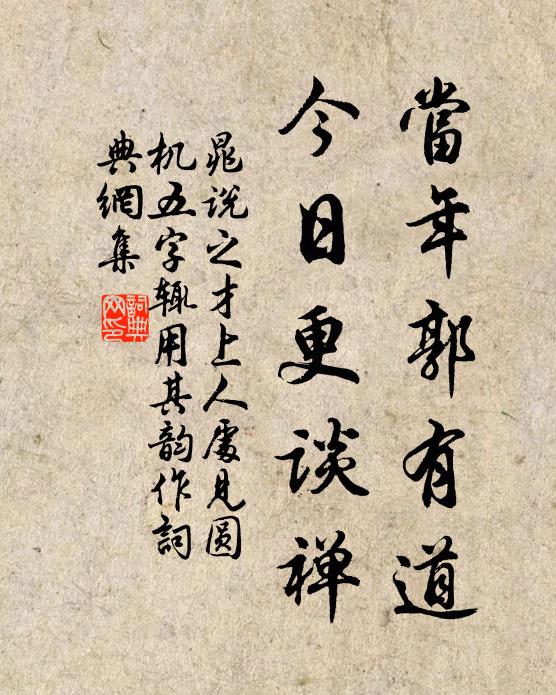 當年郭有道
今日更談禅
晁說之才上人處見圆
机五字辄用其韵作詞
典網集
詞典
网印